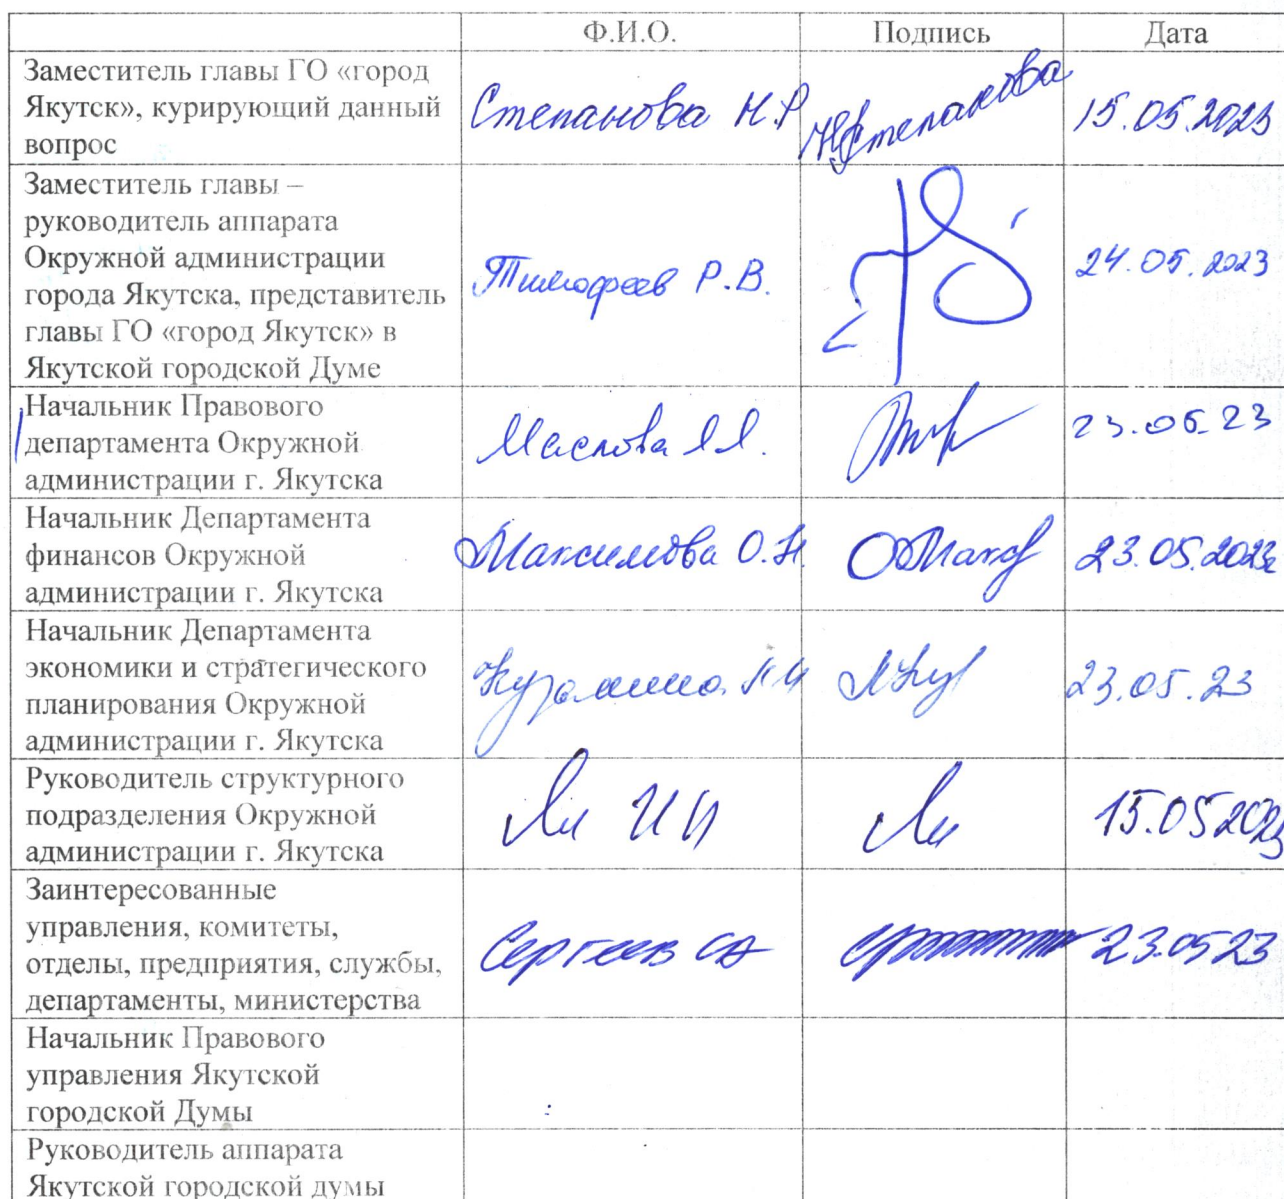 Ф.И.О. Подпись Дата
Заместитель главы ГО «город
Якутск», курирующий данный
вопрос
Степанова Н.Р. Степанова 15.05.2023
Заместитель главы –
руководитель аппарата
Окружной администрации
города Якутска, представитель
главы ГО «город Якутск» в
Якутской городской Думе
Тимофеев Р.В. 24.05.2023
Начальник Правового
департамента Окружной
администрации г. Якутска
Маслова 23.05.23
Начальник Департамента
финансов Окружной
администрации г. Якутска
Максимова О.Н. 23.05.2023
Начальник Департамента
экономики и стратегического
планирования Окружной
администрации г. Якутска
Кузьмина 23.05.23
Руководитель структурного
подразделения Окружной
администрации г. Якутска
15.05 2023
Заинтересованные
управления, комитеты,
отделы, предприятия, службы,
департаменты, министерства
Сергеев СА 23.05 23
Начальник Правового
управления Якутской
городской Думы
Руководитель аппарата
Якутской городской думы